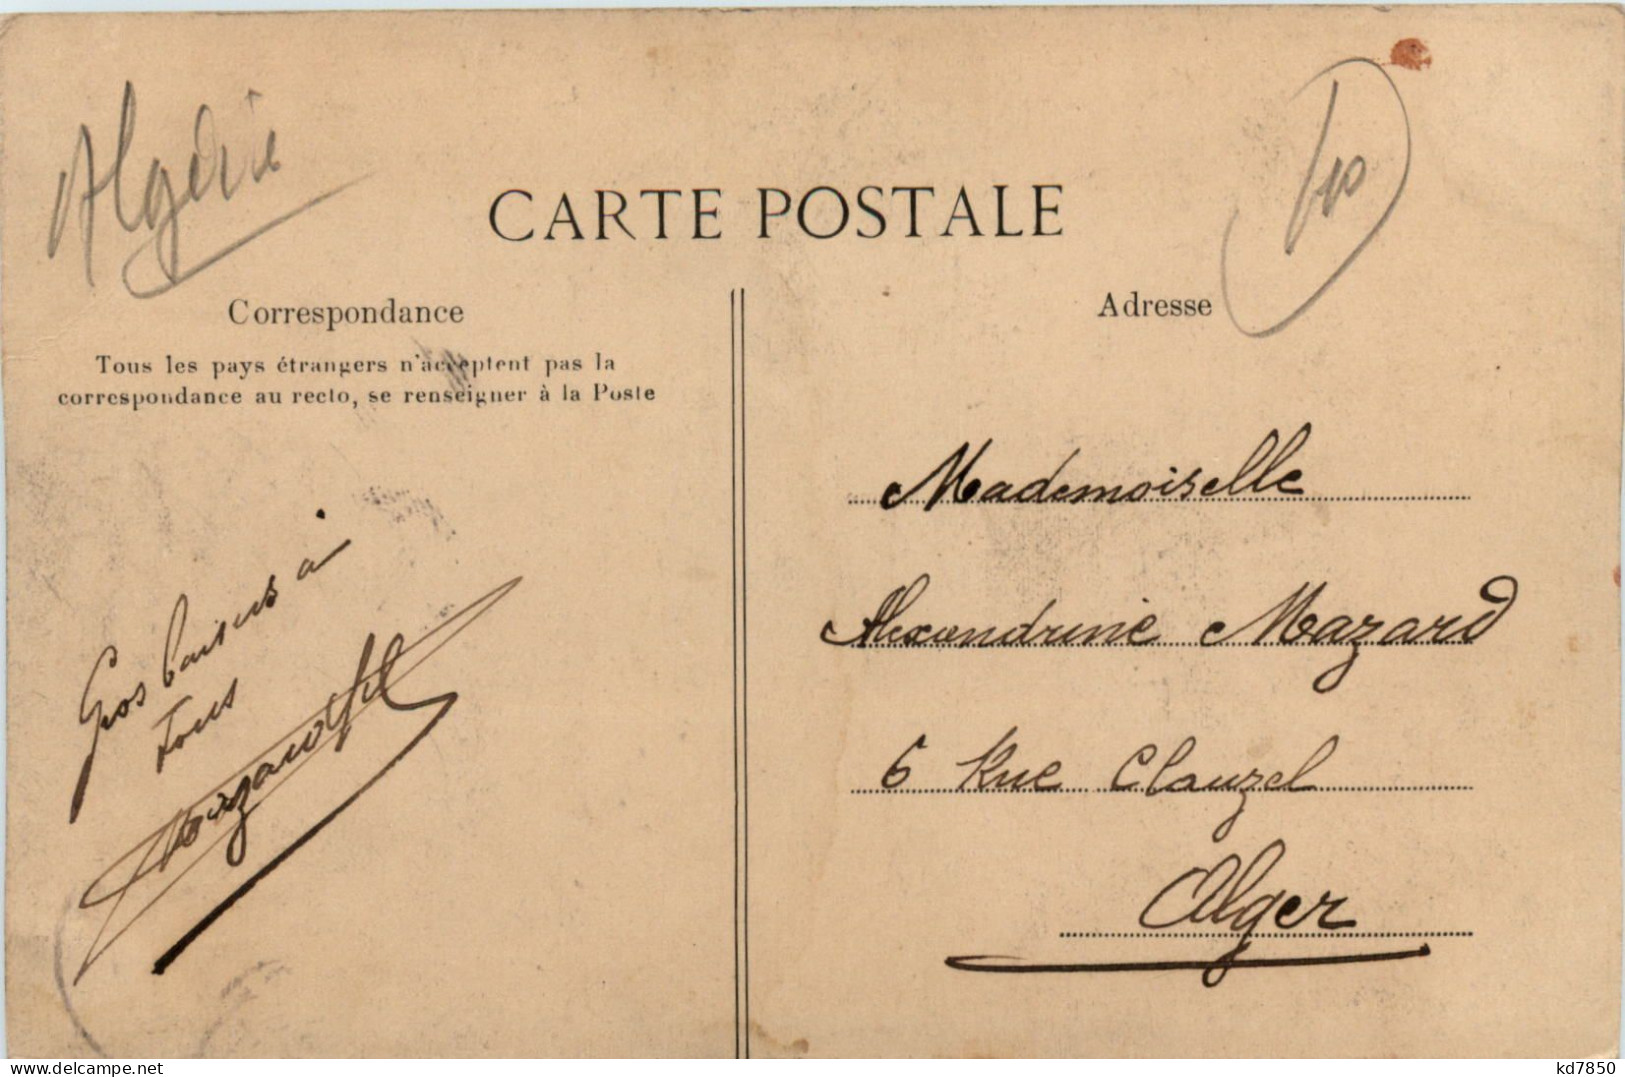 Algérie
CARTE POSTALE
Correspondance
Tous les pays étrangers n'acceptent pas la
correspondance au recto, se renseigner à la Poste
Gros baisers à
tous
Adresse
Mademoiselle
Alexandrine Mazard
6 Rue Clauzel
Alger
delcampe.net
kd7850